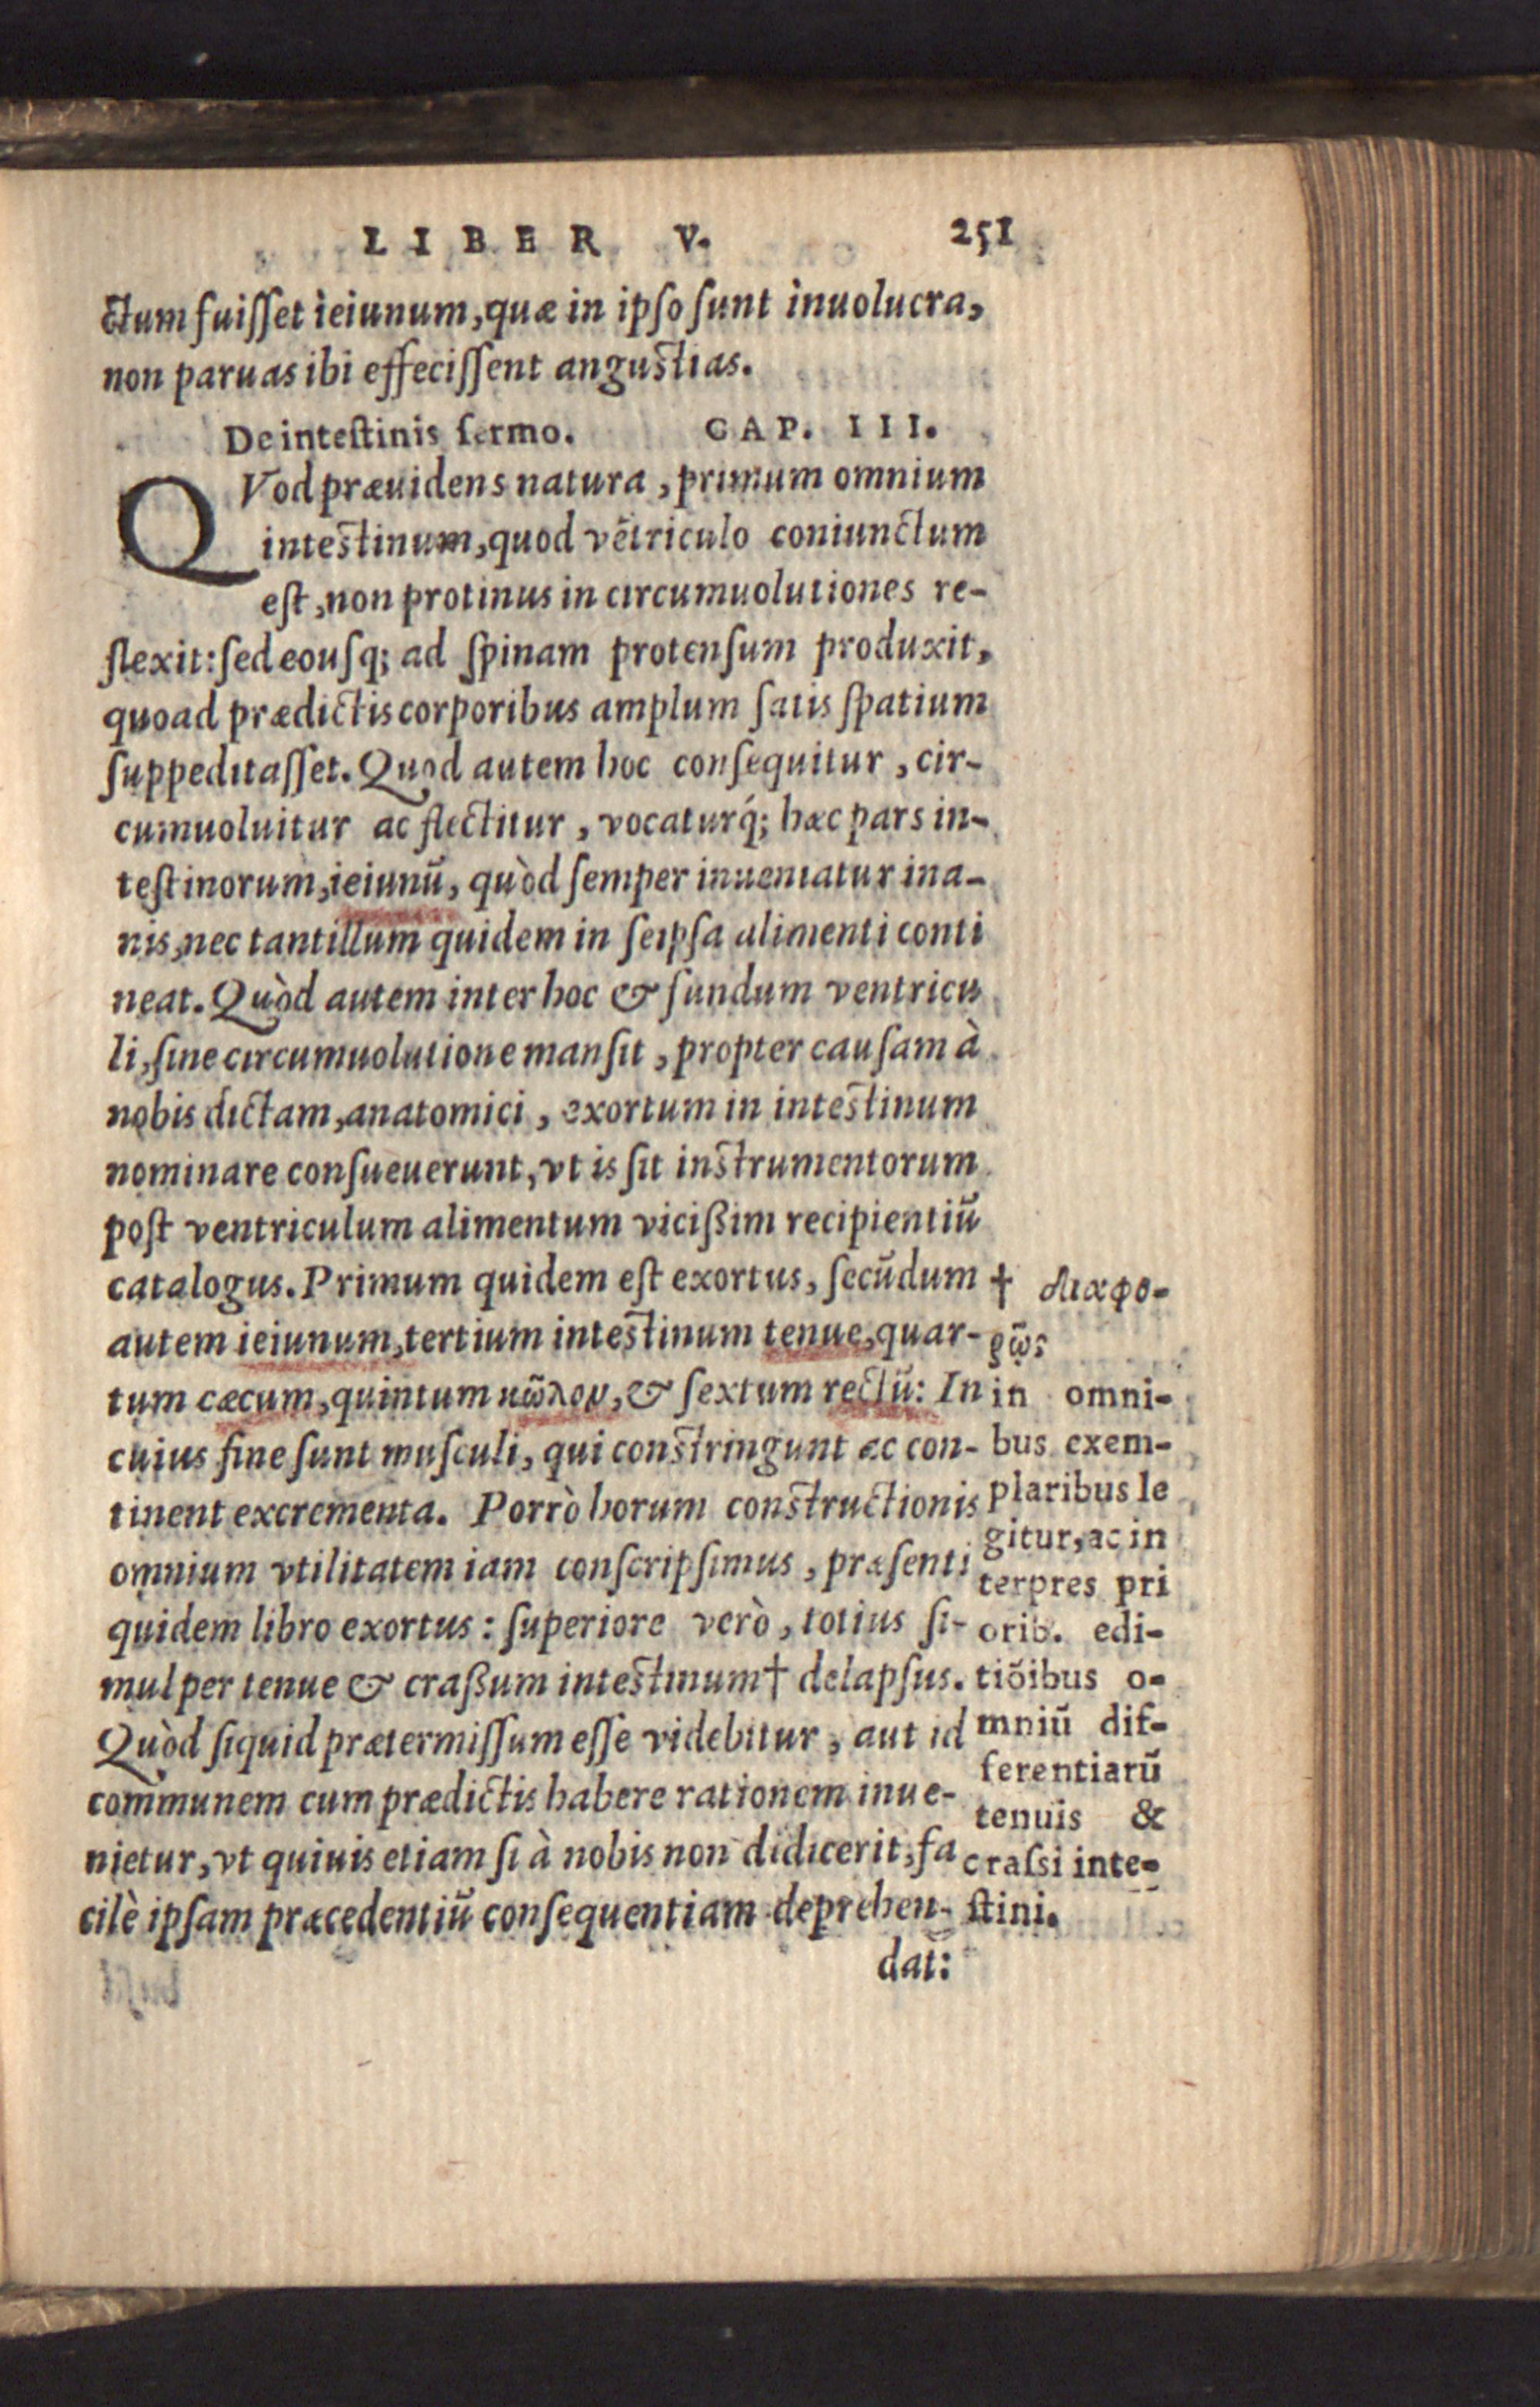 LIBER V. 251
ctum fuiſſet ieiunum, quæ in ipſo ſunt inuolucra,
non paruas ibi effeciſſent anguſtias.
De inteſtinis ſermo. CAP. III.
QVod præuidens natura, primum omnium
inteſtinum, quod vẽtriculo coniunctum
eſt, non protinus in circumuolutiones re-
flexit: ſed eouſq; ad ſpinam protenſum produxit,
quoad prædictis corporibus amplum ſatis ſpatium
ſuppeditaſſet. Quod autem hoc conſequitur, cir-
cumuoluitur ac flectitur, vocaturq́; hæc pars in-
teſtinorum, ieiunũ, quòd ſemper inueniatur ina-
nis, nec tantillum quidem in ſeipſa alimenti conti
neat. Quòd autem inter hoc & fundum ventricu
li, ſine circumuolutione manſit, propter cauſam à
nobis dictam, anatomici, exortum in inteſtinum
nominare conſueuerunt, vt is ſit inſtrumentorum
poſt ventriculum alimentum viciſsim recipientiũ
catalogus. Primum quidem eſt exortus, ſecũdum
autem ieiunum, tertium inteſtinum tenue, quar-
tum cæcum, quintum κῶλον, & ſextum rectũ: In
cuius fine ſunt muſculi, qui conſtringunt ac con-
tinent excrementa. Porrò horum conſtructionis
omnium vtilitatem iam conſcripſimus, præſenti
quidem libro exortus: ſuperiore verò, totius ſi-
mul per tenue & craſsum inteſtinum† delapſus.
Quòd ſiquid prætermiſſum eſſe videbitur, aut id
communem cum prædictis habere rationem inue-
nietur, vt quiuis etiam ſi à nobis non didicerit, fa
cilè ipſam præcedentiũ conſequentiam deprehen-
dat:
† διαφο-
ρῶς
in omni-
bus exem-
plaribus le
gitur, ac in
terpres pri
orib. edi-
tiõibus o-
mniũ dif-
ferentiarũ
tenuis &
craſsi inte-
ſtini.